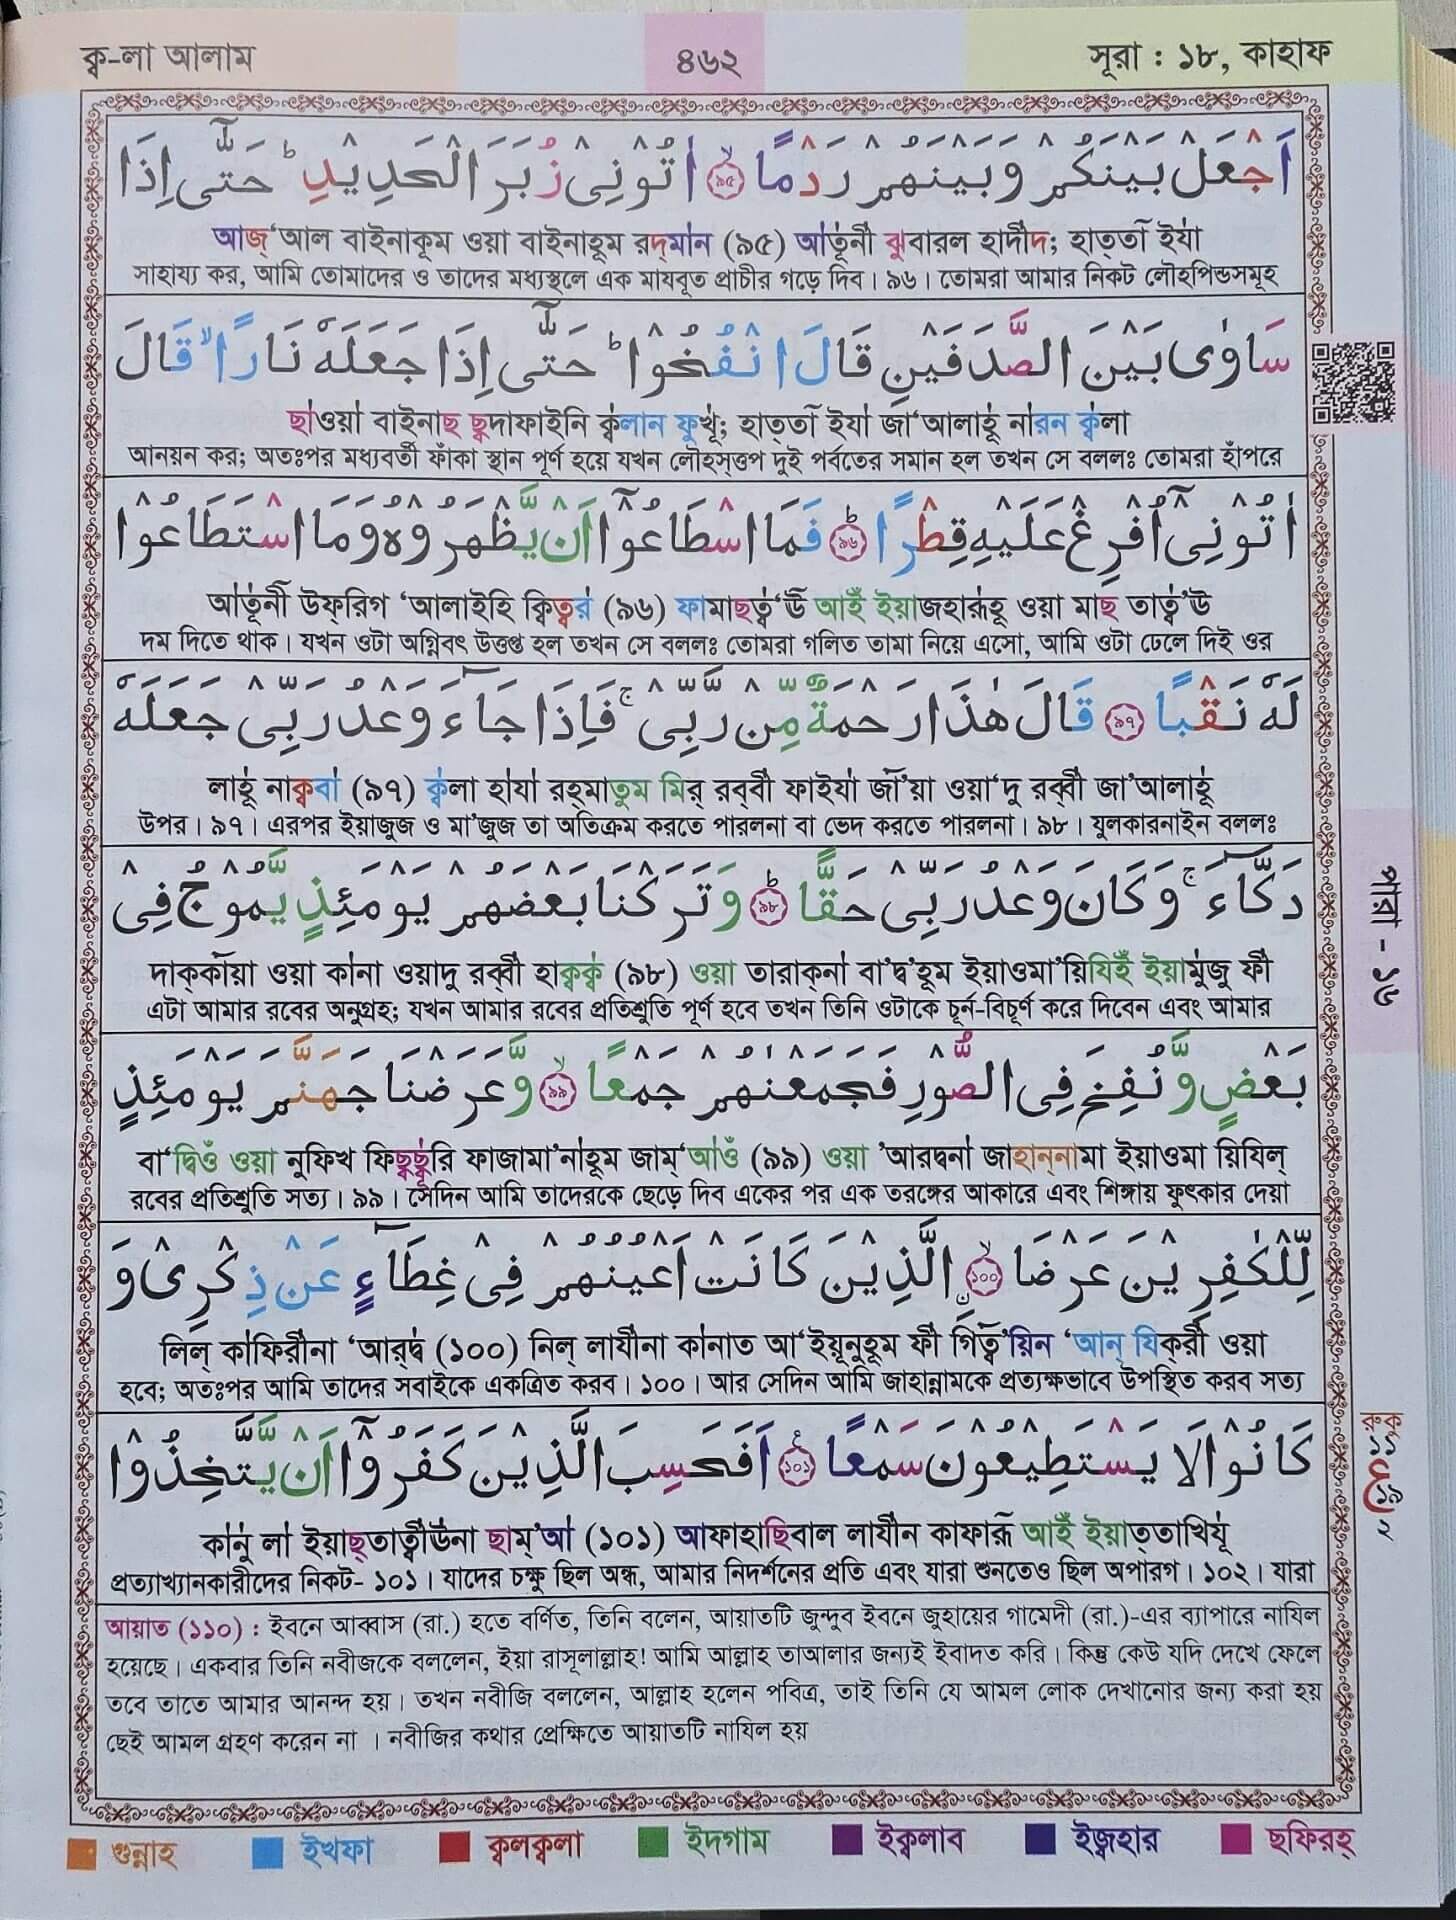 ক্ব-লা আলাম
৪৬২
সূরা : ১৮, কাহাফ
اَجْعَلْ بَيْنَكُمْ وَبَيْنَهُمْ رَدْمًا ۙ﴿৯৫﴾ اٰتُوْنِيْ زُبَرَ الْحَدِيْدِ ؕ حَتّٰۤى اِذَا
আজ্‘আল বাইনাকূম ওয়া বাইনাহূম রদ্‌মান (৯৫) আতূনী ঝুবারল হাদীদ; হাত্‌তা ইযা
সাহায্য কর, আমি তোমাদের ও তাদের মধ্যস্থলে এক মাযবূত প্রাচীর গড়ে দিব। ৯৬। তোমরা আমার নিকট লৌহপিন্ডসমূহ
سَاوٰى بَيْنَ الصَّدَفَيْنِ قَالَ انْفُخُوْا ؕ حَتّٰۤى اِذَا جَعَلَهٗ نَارًا ۙ قَالَ
ছাওয়া বাইনাছ ছুদাফাইনি ক্বলান ফুখূ; হাত্‌তা ইযা জা‘আলাহূ নারন ক্বলা
আনয়ন কর; অতঃপর মধ্যবর্তী ফাঁকা স্থান পূর্ণ হয়ে যখন লৌহস্তুপ দুই পর্বতের সমান হল তখন সে বললঃ তোমরা হাঁপরে
اٰتُوْنِيْۤ اُفْرِغْ عَلَيْهِ قِطْرًا ؕ﴿৯৬﴾ فَمَا اسْطَاعُوْۤا اَنْ يَّظْهَرُوْهُ وَمَا اسْتَطَاعُوْا
আতূনী উফ্‌রিগ ‘আলাইহি ক্বিত্বর (৯৬) ফামাছত্ব‘ঊ আইঁ ইয়াজহারূহূ ওয়া মাছ তাত্ব‘ঊ
দম দিতে থাক। যখন ওটা অগ্নিবৎ উত্তপ্ত হল তখন সে বললঃ তোমরা গলিত তামা নিয়ে এসো, আমি ওটা ঢেলে দিই ওর
لَهٗ نَقْبًا ﴿৯৭﴾ قَالَ هٰذَا رَحْمَةٌ مِّنْ رَّبِّيْ ۚ فَاِذَا جَآءَ وَعْدُ رَبِّيْ جَعَلَهٗ
লাহূ নাক্ববা (৯৭) ক্বলা হাযা রহ্‌মাতুম মির্ রব্‌বী ফাইযা জা’য়া ওয়া‘দু রব্বী জা‘আলাহূ
উপর। ৯৭। এরপর ইয়াজুজ ও মা’জুজ তা অতিক্রম করতে পারলনা বা ভেদ করতে পারলনা। ৯৮। যুলকারনাইন বললঃ
دَكَّآءَ ۚ وَكَانَ وَعْدُ رَبِّيْ حَقًّا ؕ﴿৯৮﴾ وَتَرَكْنَا بَعْضَهُمْ يَوْمَئِذٍ يَّمُوْجُ فِيْ
দাক্‌কায়া ওয়া কানা ওয়াদু রব্বী হাক্বক্ব (৯৮) ওয়া তারাক্‌না বা‘দ্ব’হূম ইয়াওমা’য়িযিইঁ ইয়ামুজু ফী
এটা আমার রবের অনুগ্রহ; যখন আমার রবের প্রতিশ্রুতি পূর্ণ হবে তখন তিনি ওটাকে চূর্ন-বিচূর্ণ করে দিবেন এবং আমার
بَعْضٍ وَّنُفِخَ فِي الصُّوْرِ فَجَمَعْنٰهُمْ جَمْعًا ۙ﴿৯৯﴾ وَّعَرَضْنَا جَهَنَّمَ يَوْمَئِذٍ
বা‘দ্বিওঁ ওয়া নুফিখ ফিছ্ছূরি ফাজামা’নাহূম জাম্‘আওঁ (৯৯) ওয়া ‘আরদ্বনা জাহান্‌নামা ইয়াওমা য়িযিল্
রবের প্রতিশ্রুতি সত্য। ৯৯। সেদিন আমি তাদেরকে ছেড়ে দিব একের পর এক তরঙ্গের আকারে এবং শিঙ্গায় ফুৎকার দেয়া
لِّلْكٰفِرِيْنَ عَرْضَا ۙ﴿১০০﴾ ۨالَّذِيْنَ كَانَتْ اَعْيُنُهُمْ فِيْ غِطَآءٍ عَنْ ذِكْرِيْ وَ
লিল্ কাফিরীনা ‘আর্‌দ্ব (১০০) নিল্ লাযীনা কানাত আ‘ইয়ূনুহূম ফী গিত্ব’য়িন ‘আন্ যিক্‌রী ওয়া
হবে; অতঃপর আমি তাদের সবাইকে একত্রিত করব। ১০০। আর সেদিন আমি জাহান্নামকে প্রত্যক্ষভাবে উপস্থিত করব সত্য
كَانُوْا لَا يَسْتَطِيْعُوْنَ سَمْعًا ﴿১০১﴾ اَفَحَسِبَ الَّذِيْنَ كَفَرُوْۤا اَنْ يَّتَّخِذُوْا
কানু লা ইয়াছ্‌তাত্বীঊনা ছাম্‘আ (১০১) আফাহাছিবাল লাযীন কাফারূ আইঁ ইয়াত্‌তাখিযূ
প্রত্যাখ্যানকারীদের নিকট- ১০১। যাদের চক্ষু ছিল অন্ধ, আমার নিদর্শনের প্রতি এবং যারা শুনতেও ছিল অপারগ। ১০২। যারা
আয়াত (১১০) : ইবনে আব্বাস (রা.) হতে বর্ণিত, তিনি বলেন, আয়াতটি জুন্দুব ইবনে জুহায়ের গামেদী (রা.)-এর ব্যাপারে নাযিল
হয়েছে। একবার তিনি নবীজকে বললেন, ইয়া রাসূলাল্লাহ! আমি আল্লাহ তাআলার জন্যই ইবাদত করি। কিন্তু কেউ যদি দেখে ফেলে
তবে তাতে আমার আনন্দ হয়। তখন নবীজি বললেন, আল্লাহ হলেন পবিত্র, তাই তিনি যে আমল লোক দেখানোর জন্য করা হয়
ছেই আমল গ্রহণ করেন না । নবীজির কথার প্রেক্ষিতে আয়াতটি নাযিল হয়
পারা - ১৬
গুন্নাহ
ইখফা
ক্বলক্বলা
ইদগাম
ইক্বলাব
ইজ্বহার
ছফিরহ্